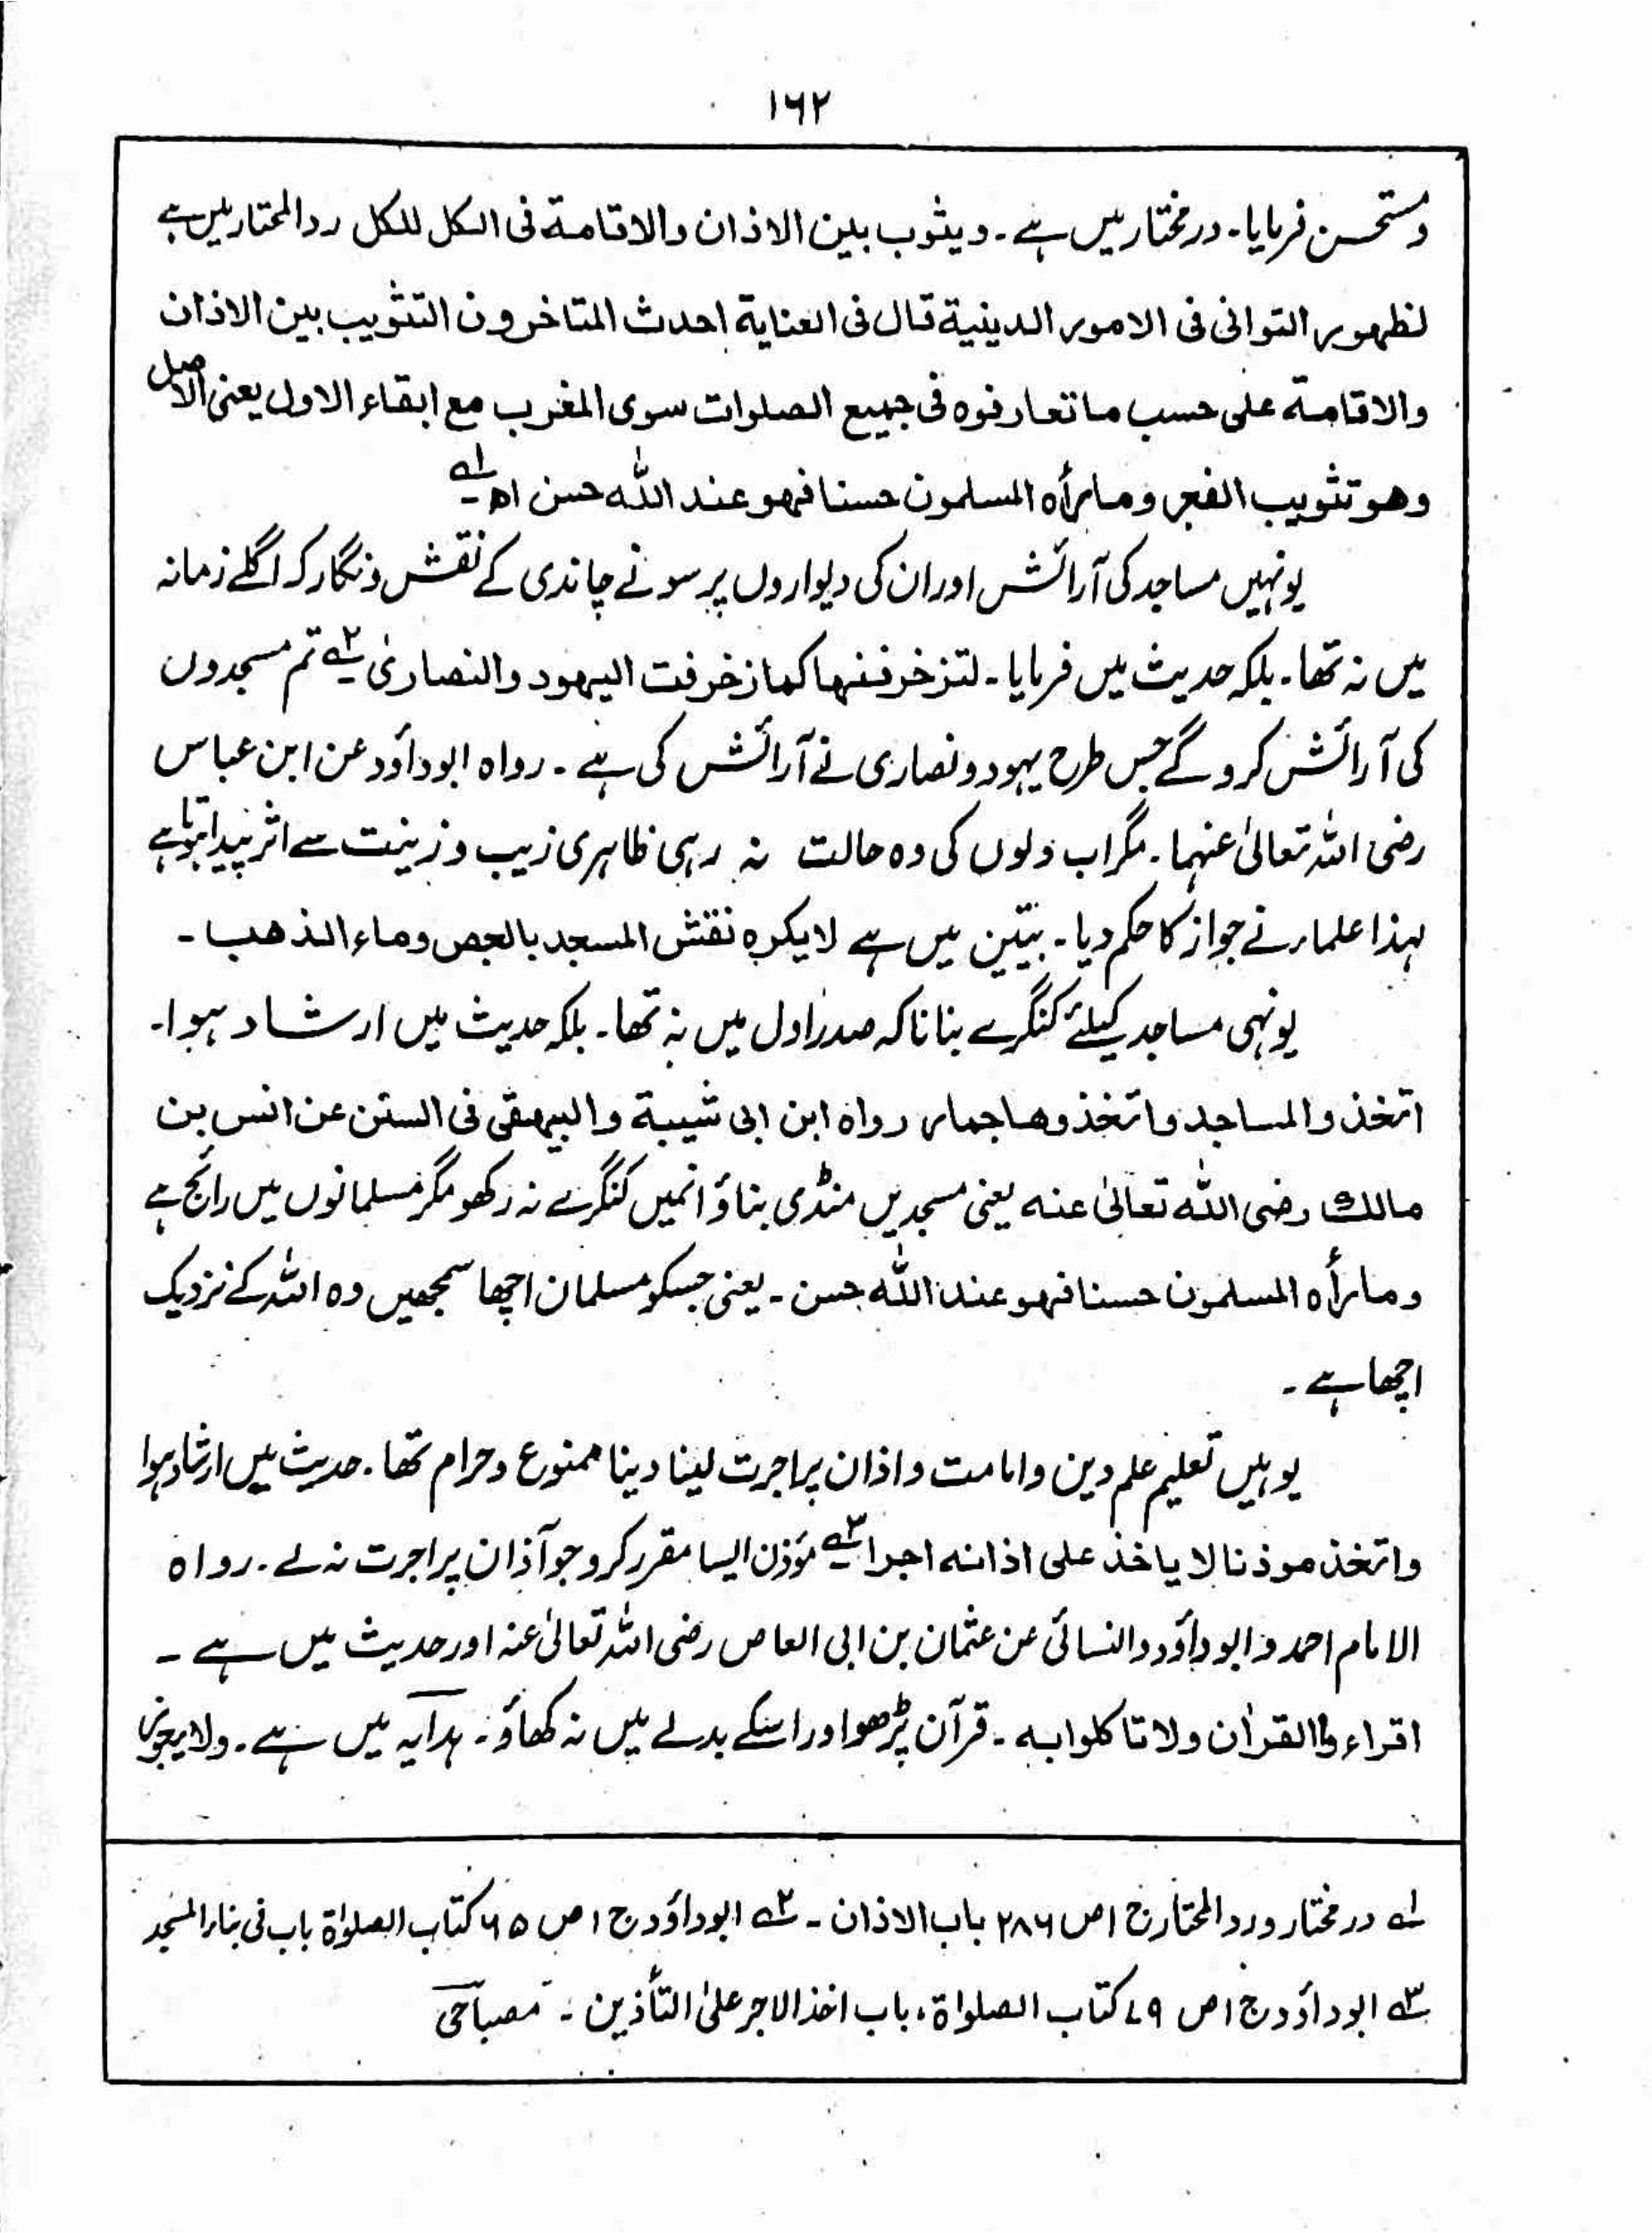 ۱۶۲
ومستحسن فرمایا۔ درمختار میں ہے۔ ویثوب بین الاذان والاقامة فی الکل للکل ردالمحتار میں ہے
لظهور التوانی فی الامور الدینیة قال فی العنایة احدث المتاخرون التثویب بین الاذان
والاقامة علی حسب ما تعارفوہ فی جمیع الصلوات سوی المغرب مع ابقاء الاول یعنی الاصل
وھو تثویب الفجر وما رأہ المسلمون حسنا فھو عند اللہ حسن اھ ۱ے
یونہیں مساجد کی آرائش اور ان کی دیواروں پر سونے چاندی کے نقش ونگار کہ اگلے زمانہ
میں نہ تھا۔ بلکہ حدیث میں فرمایا۔ لتزخرفنها کما زخرفت الیهود والنصاریٰ ۲ے تم مسجدوں
کی آرائش کروگے جس طرح یہود ونصاری نے آرائش کی ہے۔ رواہ ابوداؤد عن ابن عباس
رضی اللہ تعالیٰ عنہما۔ مگر اب دلوں کی وہ حالت نہ رہی ظاہری زیب وزینت سے اثر پیدا ہوتا ہے
لہذا علماء نے جواز کا حکم دیا۔ تبیین میں ہے لایکرہ نقش المسجد بالجص وماء الذهب۔
یونہی مساجد کیلئے کنگرے بنانا کہ صدر اول میں نہ تھا۔ بلکہ حدیث میں ارشاد ہوا۔
اتخذوا المساجد واتخذوها جمار رواہ ابن ابی شیبة والبیهقی فی السنن عن انس بن
مالك رضی اللہ تعالیٰ عنه یعنی مسجدیں منڈی بناؤ انمیں کنگرے نہ رکھو مگر مسلمانوں میں رائج ہے
وما رأہ المسلمون حسنا فهو عند اللہ حسن۔ یعنی جسکو مسلمان اچھا سمجھیں وہ اللہ کے نزدیک
اچھا ہے۔
یوہیں تعلیم علم دین وامامت واذان پر اجرت لینا دینا ممنوع وحرام تھا۔ حدیث میں ارشاد ہوا
واتخذ موذنا لا یاخذ علی اذانه اجرا ۳ے مؤذن ایسا مقرر کرو جو آذان پر اجرت نہ لے۔ رواہ
الامام احمد وابوداؤد والنسائی عن عثمان بن ابی العاص رضی اللہ تعالیٰ عنہ اور حدیث میں ہے۔
اقراءوا القراٰن ولا تاکلوا به۔ قرآن پڑھو اور اسکے بدلے میں نہ کھاؤ۔ ہدایہ میں ہے۔ ولا یجوز
۱ے درمختار وردالمحتار ج ۱ ص ۲۸۶ باب الاذان۔ ۲ے ابوداؤد ج ۱ ص ۶۵ کتاب الصلوٰة باب فی بناء المسجد
۳ے ابوداؤد ج ۱ ص ۷۹ کتاب الصلواة، باب اخذ الاجر علیٰ التأذین۔ مصباحی